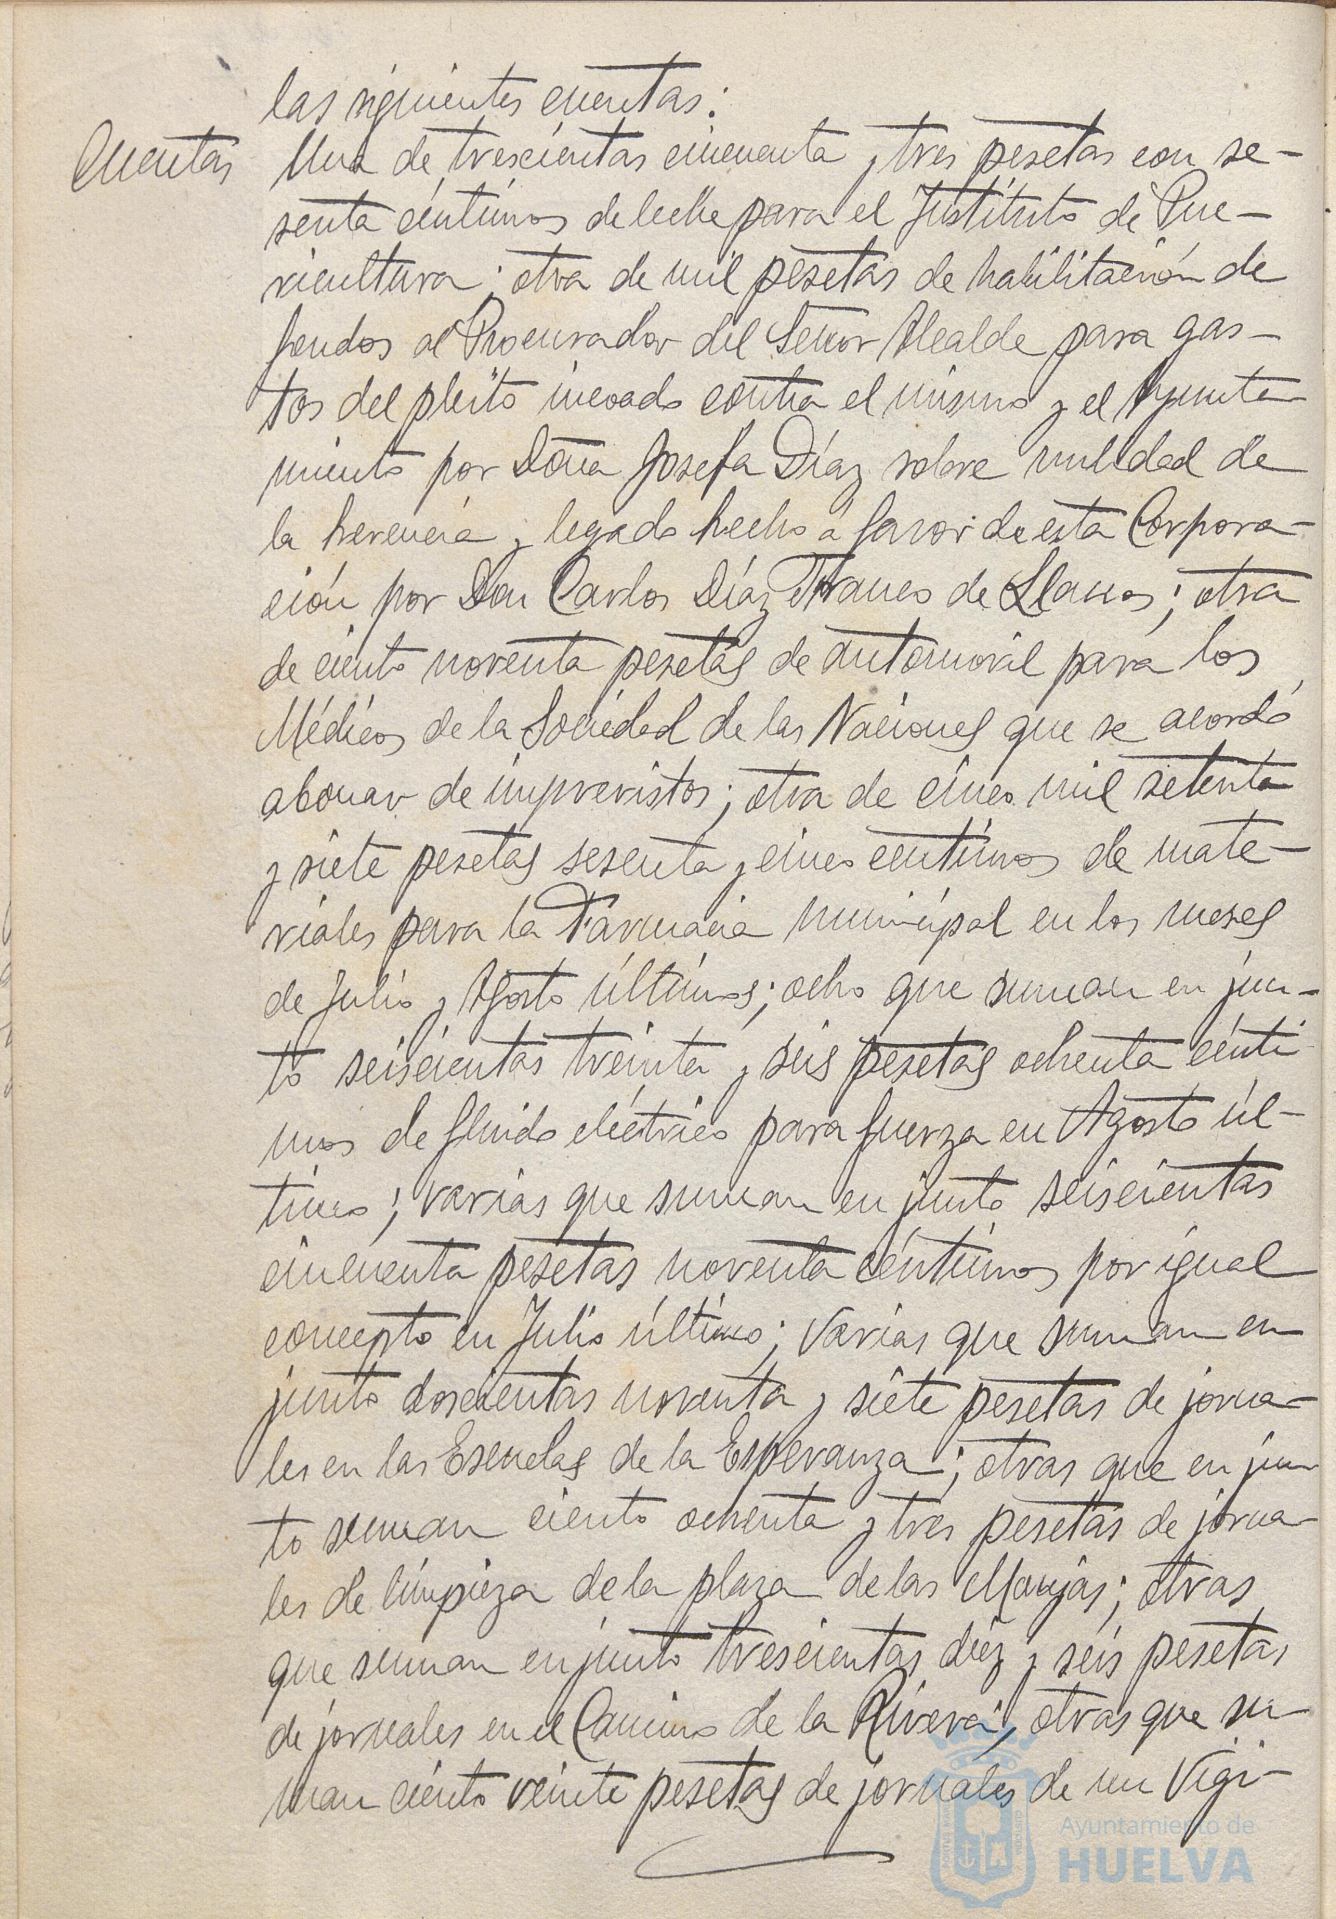 las siguientes cuentas:
Cuentas Una de trescientas cincuenta y tres pesetas con se-
senta céntimos de leche para el Instituto de Pue-
ricultura; otra de mil pesetas de habilitación de
fondos al Procurador del Señor Alcalde para gas-
tos del pleito incoado contra el mismo y el Ayunta
miento por Doña Josefa Díaz sobre nulidad de
la herencia y legado hecho a favor de esta Corpora-
ción por Don Carlos Díaz Franco de Llanos; otra
de ciento noventa pesetas de automovil para los
Médicos de la Sociedad de las Naciones que se acordó
abonar de imprevistos; otra de cinco mil setenta
y siete pesetas sesenta y cinco centimos de mate-
riales para la Farmacia Municipal en los meses
de Julio y Agosto últimos; ocho que suman en jun-
to seiscientas treinta y seis pesetas ochenta cénti
mos de fluido eléctrico para fuerza en Agosto úl-
timo; varias que suman en junto seiscientas
cincuenta pesetas noventa céntimos por igual
concepto en Julio último; varias que suman en
junto doscientas noventa y siete pesetas de jorna-
les en las Escuelas de la Esperanza; otras que en jun
to suman ciento ochenta y tres pesetas de jorna-
les de limpieza de la plaza de las Monjas; otras
que suman en junto trescientas diez y seis pesetas
de jornales en el Camino de la Rivera; otras que su-
man ciento veinte pesetas de jornales de un Vigi-
Ayuntamiento de
HUELVA